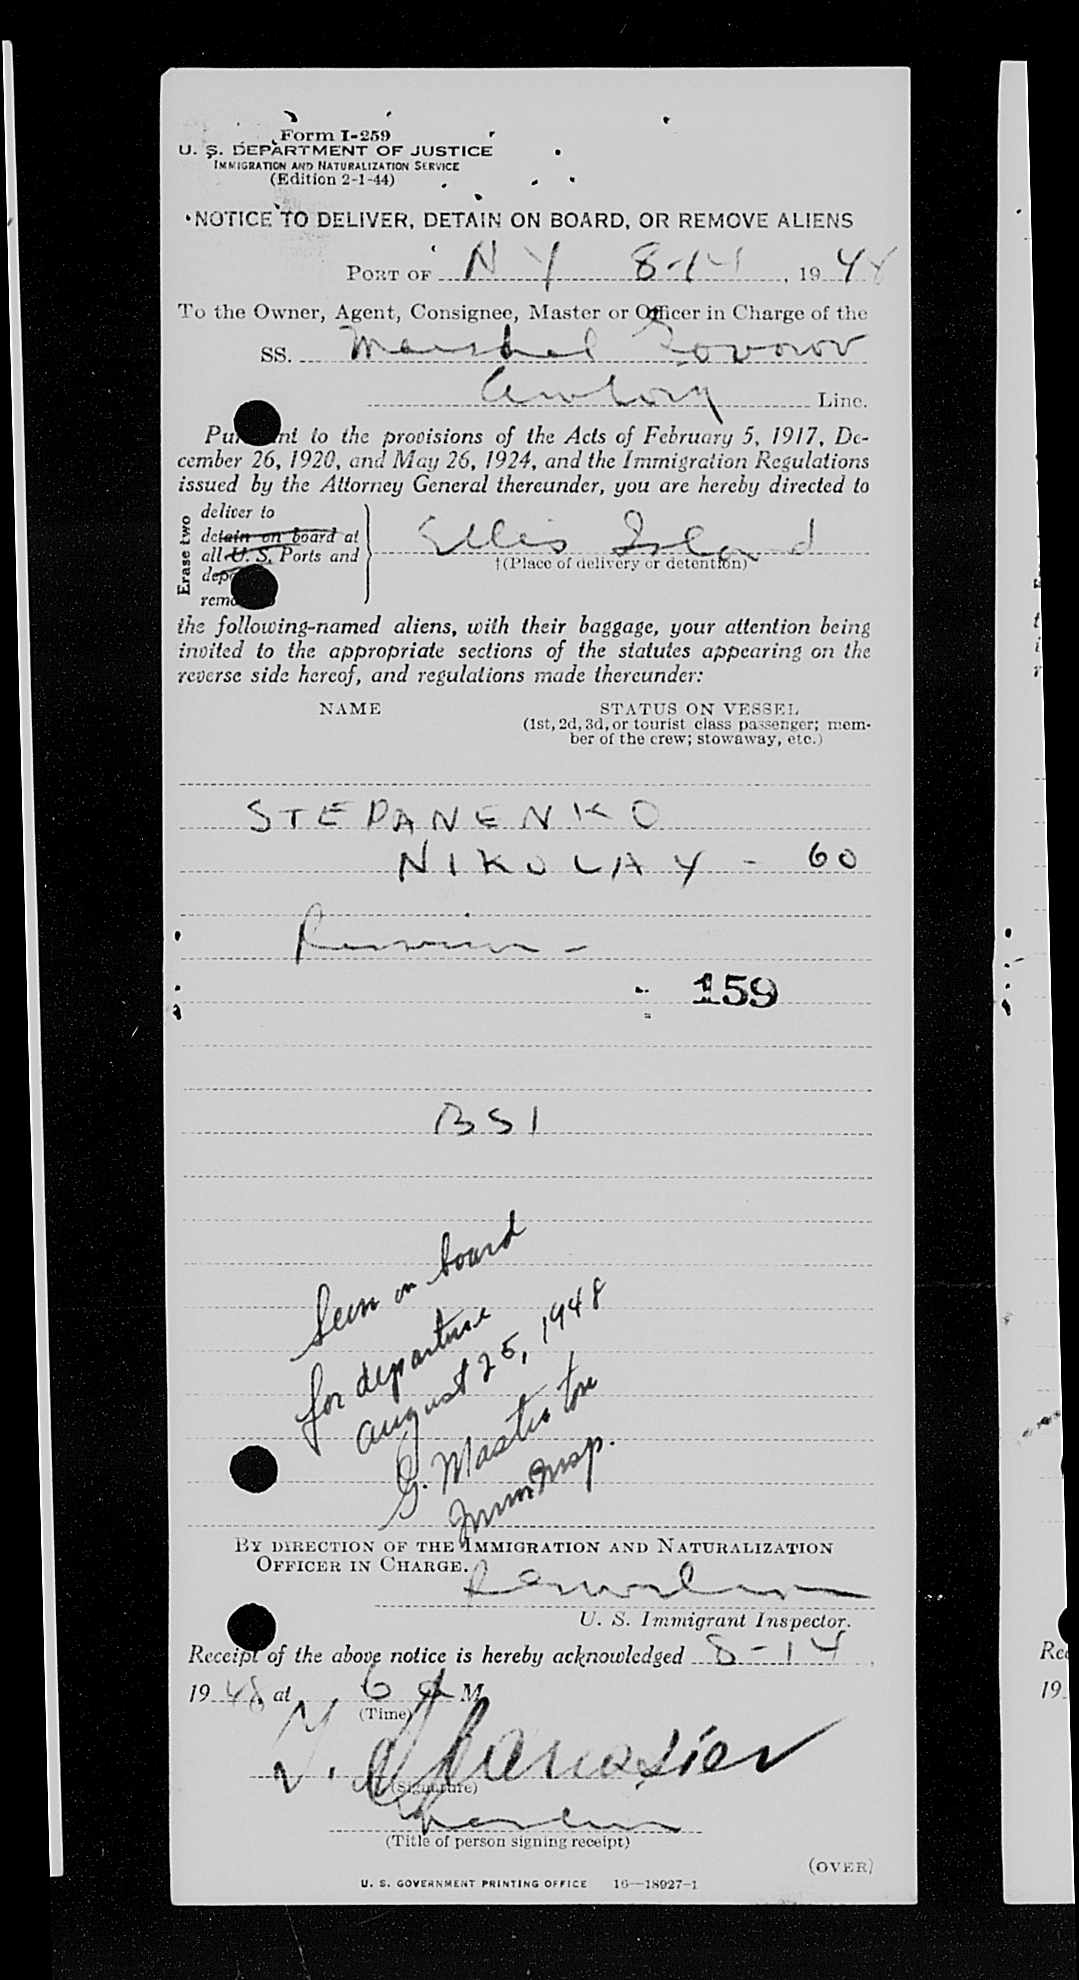 Form I-259
U. S. DEPARTMENT OF JUSTICE
IMMIGRATION AND NATURALIZATION SERVICE
(Edition 2-1-44)
NOTICE TO DELIVER, DETAIN ON BOARD, OR REMOVE ALIENS
PORT OF N Y 8-14, 1948
To the Owner, Agent, Consignee, Master or Officer in Charge of the
SS. Marshal Govorov
Line.
Pu nt to the provisions of the Acts of February 5, 1917, De-
cember 26, 1920, and May 26, 1924, and the Immigration Regulations
issued by the Attorney General thereunder, you are hereby directed to
Erase two
deliver to
detain on board at
all U. S. Ports and
dep
remo
Ellis Island
†(Place of delivery or detention)
the following-named aliens, with their baggage, your attention being
invited to the appropriate sections of the statutes appearing on the
reverse side hereof, and regulations made thereunder:
NAME STATUS ON VESSEL
(1st, 2d, 3d, or tourist class passenger; mem-
ber of the crew; stowaway, etc.)
STEPANENKO
NIKOLAY - 60
Russian -
159
BSI
Seen on board
for departure
August 25, 1948
G. Masterton
Imm Insp.
BY DIRECTION OF THE IMMIGRATION AND NATURALIZATION
OFFICER IN CHARGE.
U. S. Immigrant Inspector.
Receipt of the above notice is hereby acknowledged 8-14,
1948, at 6 a M
(Time)
(Signature)
(Title of person signing receipt)
(OVER)
U. S. GOVERNMENT PRINTING OFFICE 16—18927-1
Rec
19